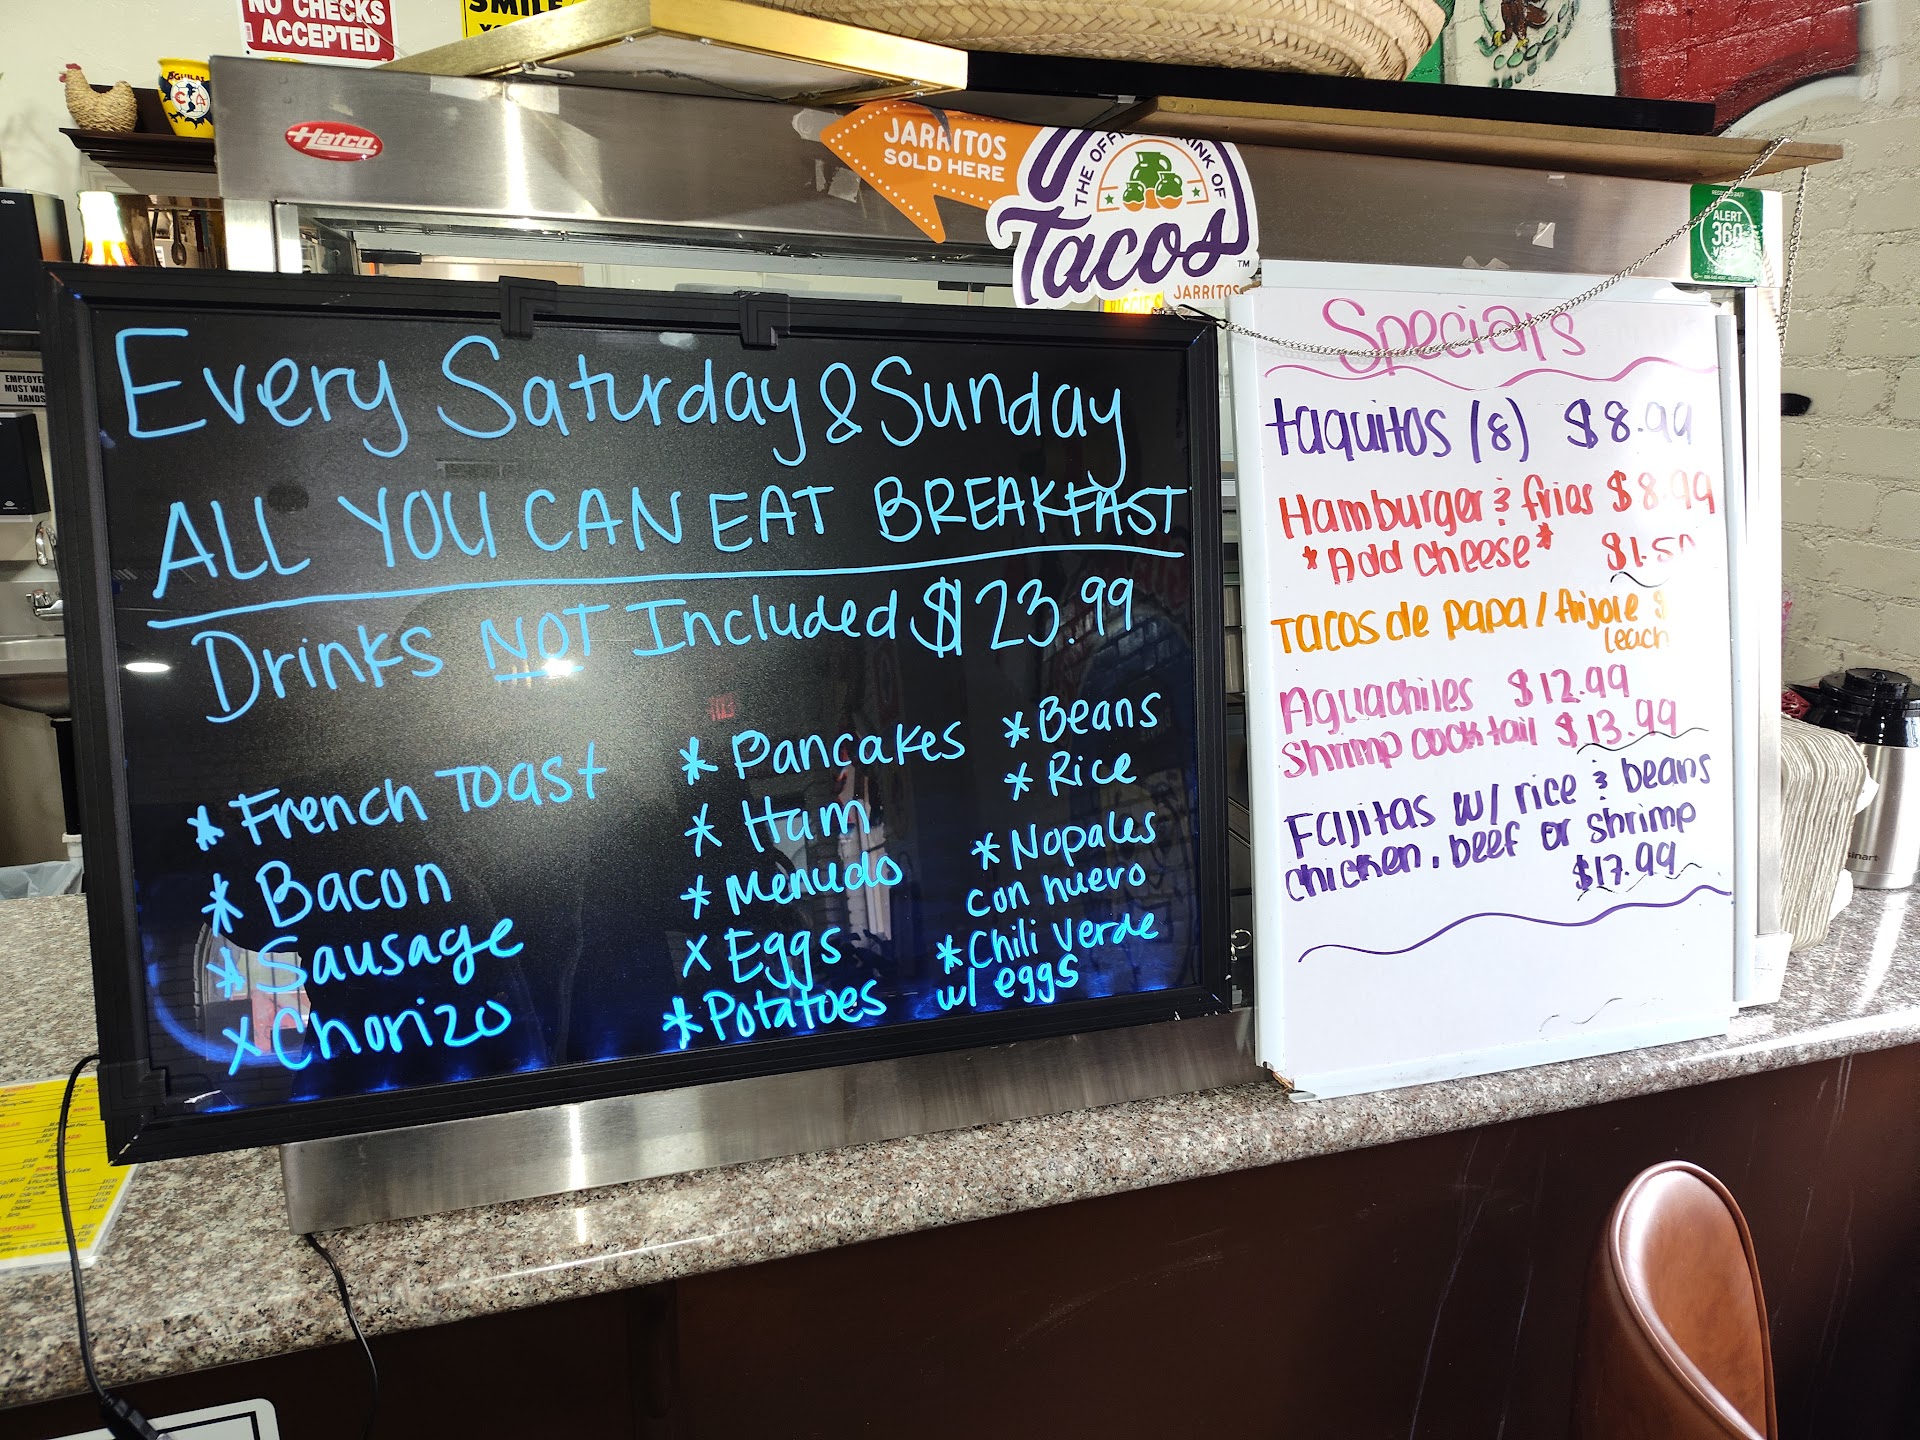 NO CHECKS
ACCEPTED
SMILE
AGUILAS
CA
Hatco
JARRITOS
SOLD HERE
THE OFFICIAL DRINK OF
Tacos
TM
JARRITOS
ALERT
360
EMPLOYE
MUST WA
HANDS
Every Saturday & Sunday
ALL YOU CAN EAT BREAKFAST
Drinks NOT Included $23.99
* French Toast
* Bacon
* Sausage
* Chorizo
* Pancakes
* Ham
* Menudo
* Eggs
* Potatoes
* Beans
* Rice
* Nopales
con huevo
* Chili Verde
w/ eggs
Specials
taquitos (8) $8.99
Hamburger & fries $8.99
*Add cheese* $1.50
Tacos de papa / frijole $
1 each
Aguachiles $12.99
Shrimp cocktail $13.99
Fajitas w/ rice & beans
chicken, beef or shrimp
$17.99